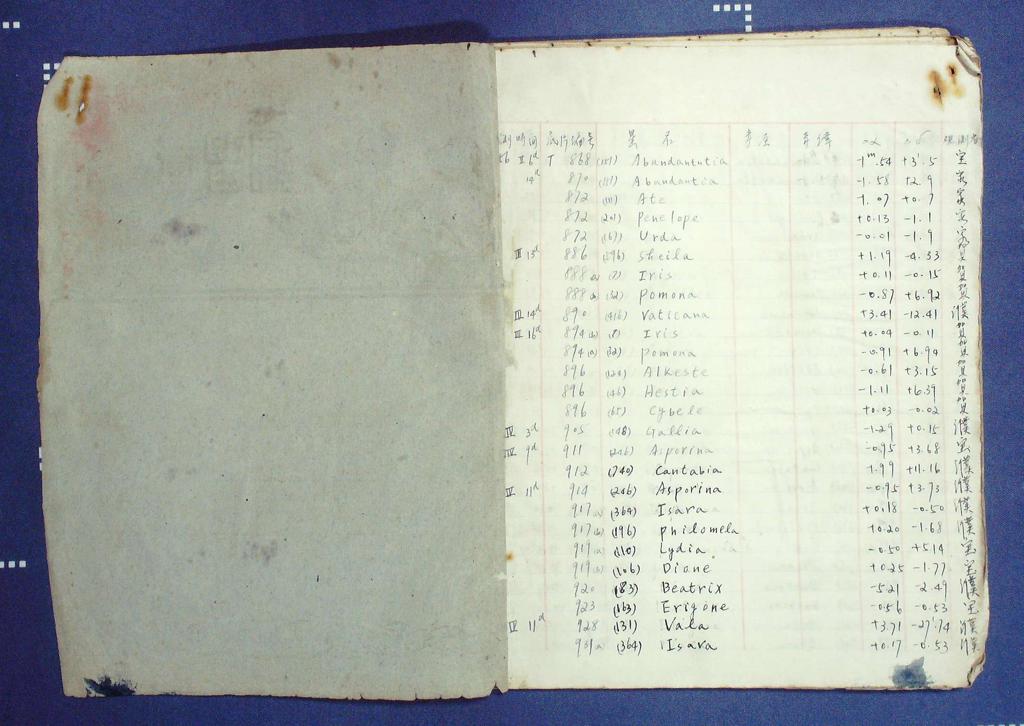 测时间 底片编号 星名 赤经 赤纬 Δα Δδ 观测者
56 II 6d T 868 (151) Abundantutia -1m.54 +3'.5 宝
14d 870 (151) Abundantia -1.58 +2.9 宝
872 (111) Ate -1.07 +0.7 宝
872 (201) Penelope +0.13 -1.1 宝
872 (167) Urda -0.01 -1.9 宝
III 13d 886 (196) Sheila +1.19 -4.33 贺
888 (a) (7) Iris +0.11 -0.15 贺
888 (a) (32) Pomona -0.87 +6.92 贺
III 14d 890 (416) Vaticana +3.41 -12.41 濮
III 16d 894 (a) (7) Iris +0.04 -0.11 贺
894 (a) (32) Pomona -0.91 +6.94 贺
896 (124) Alkeste -0.61 +3.15 贺
896 (46) Hestia -1.11 +6.39 贺
896 (65) Cybele +0.03 -0.02 贺
IV 3d 905 (148) Gallia -1.29 +0.15 濮
IV 9d 911 (246) Asporina -0.95 +3.68 宝
912 (740) Cantabia -1.99 +11.16 濮
IV 11d 914 (246) Asporina -0.95 +3.73 濮
917 (a) (364) Isara +0.18 -0.50 濮
917 (b) (196) Philomela +0.20 -1.68 濮
919 (a) (110) Lydia -0.50 +5.14 宝
919 (b) (106) Dione +0.25 -1.77 宝
920 (83) Beatrix -5.21 -2.49 濮
923 (163) Erigone -0.56 -0.53 宝
IV 11d 928 (131) Vala +3.71 -27.74 濮
931 a (364) Isara +0.17 -0.53 濮